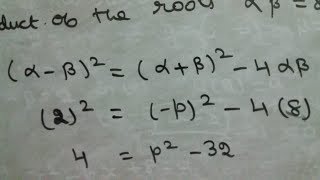 duct of the roots αβ = 8
(α - β)² = (α + β)² - 4αβ
(2)² = (-p)² - 4(8)
4 = p² - 32